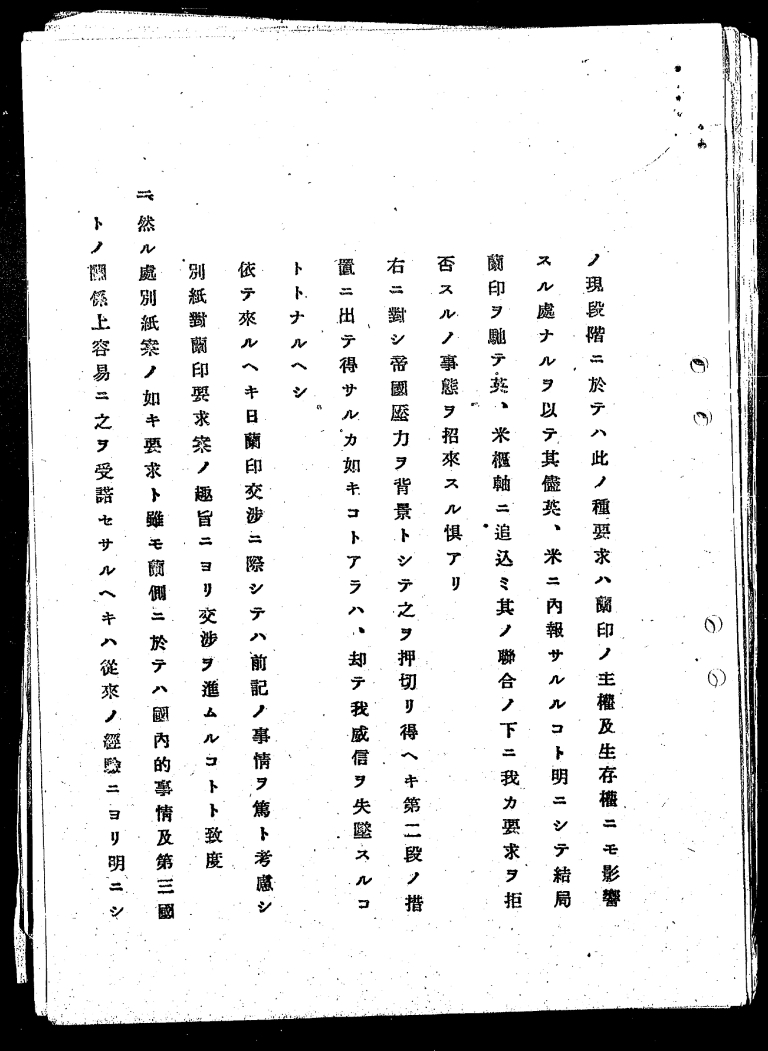 ノ現段階ニ於テハ此ノ種要求ハ蘭印ノ主權及生存權ニモ影響
スル處ナルヲ以テ其儘英、米ニ內報サルルコト明ニシテ結局
蘭印ヲ馳テ英、米樞軸ニ追込ミ其ノ聯合ノ下ニ我カ要求ヲ拒
否スルノ事態ヲ招來スル惧アリ
右ニ對シ帝國壓力ヲ背景トシテ之ヲ押切リ得ヘキ第二段ノ措
置ニ出テ得サルカ如キコトアラハ、却テ我威信ヲ失墜スルコ
トトナルヘシ
依テ來ルヘキ日蘭印交涉ニ際シテハ前記ノ事情ヲ篤ト考慮シ
別紙對蘭印要求案ノ趣旨ニヨリ交涉ヲ進ムルコトト致度
二、然ル處別紙案ノ如キ要求ト雖モ蘭側ニ於テハ國內的事情及第三國
トノ關係上容易ニ之ヲ受諾セサルヘキハ從來ノ經驗ニヨリ明ニシ